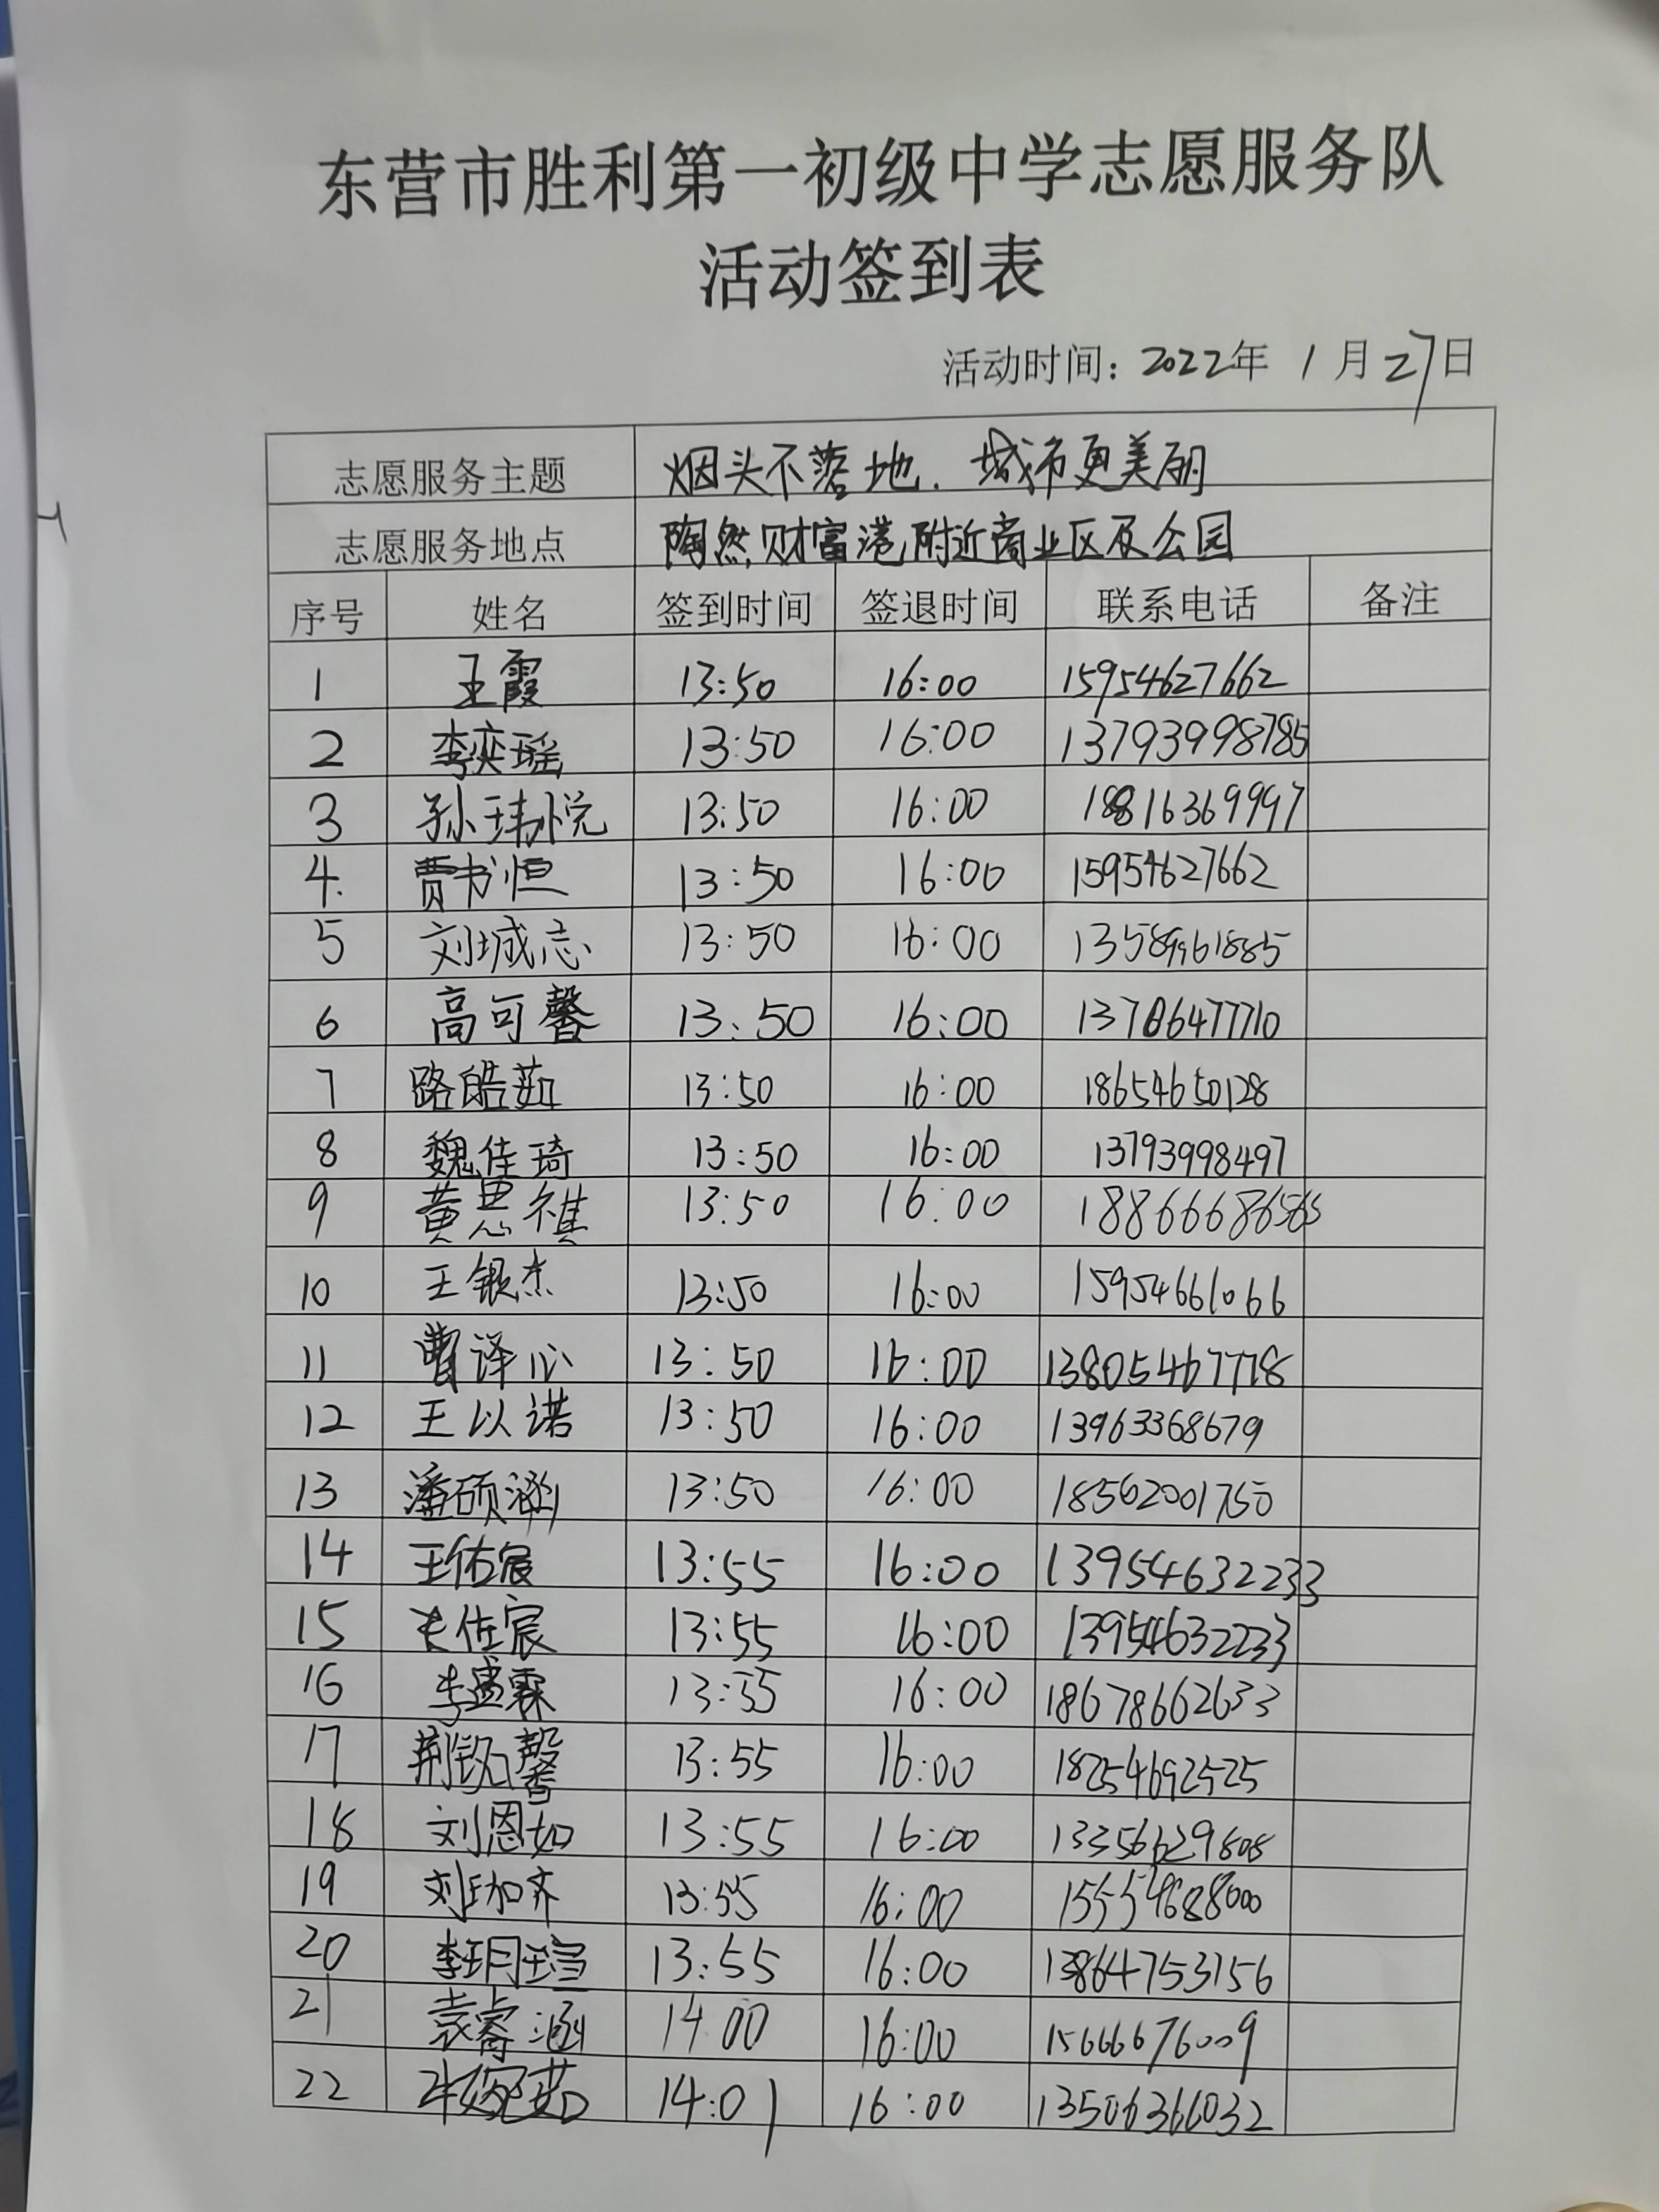 东营市胜利第一初级中学志愿服务队
活动签到表
活动时间：2022年 1月27日
志愿服务主题 烟头不落地．城市更美丽
志愿服务地点 陶然财富港附近商业区及公园
序号 姓名 签到时间 签退时间 联系电话 备注
1 王霞 13:50 16:00 15954627662
2 李奕瑶 13:50 16:00 13793998785
3 孙玮悦 13:50 16:00 18816369997
4. 贾书恒 13:50 16:00 15954627662
5 刘城志 13:50 16:00 13589961885
6 高可馨 13:50 16:00
7 路皓茹 13:50 16:00 18654650128
8 魏佳琦 13:50 16:00 13793998497
9 黄思祺 13:50 16:00
10 王银杰 13:50 16:00 15954661066
11 曹译心 13:50 16:00 13805467778
12 王以诺 13:50 16:00 13963368679
13 潘硕涵 13:50 16:00 18562001750
14 王佑宸 13:55 16:00 13954632233
15 王佐宸 13:55 16:00 13954632233
16 李盛霖 13:55 16:00 18678662633
17 13:55 16:00 18254692525
18 刘恩如 13:55 16:00 13356629808
19 刘珈齐 13:55 16:00 15554688000
20 李玥瑄 13:55 16:00 13864753156
21 袁睿涵 14:00 16:00 15666676009
22 14:01 16:00 13506366032